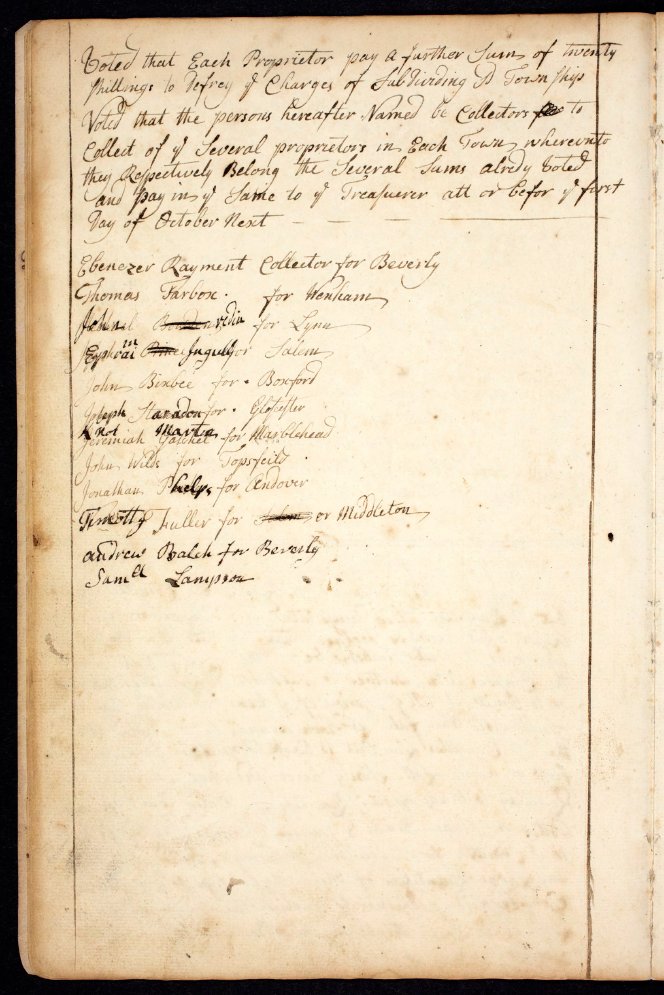 Voted that Each Proprietor pay a further Sum of twenty
shillings to Defrey ye Charges of Subdivideing sd Township
Voted that the persons hereafter Named be Collectors to
Collect of ye Several proprietors in Each Town whereunto
they Respectively Belong the Several Sums alredy Voted
and pay in ye Same to ye Treasurer att or befor ye first
Day of October Next
Ebenezer Rayment Collector for Beverly
Thomas Tarbox. for Wenham
for Lynn
Ephraim for Salem
John Bixbee for Boxford
Joseph for Glocester
Knot Martin
Jeremiah Gatchel for Marblehead
John Wilds for Topsfeild
Jonathan Phelps for Andover
Timothy Fuller for Salem or Middleton
andrew Balch for Beverly
Samll Lampson